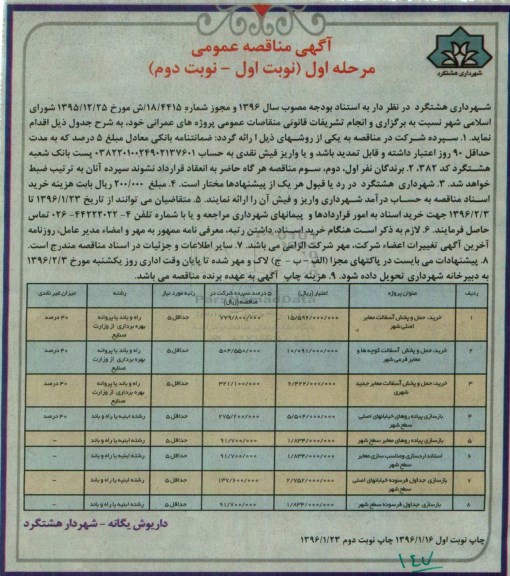 شهرداری هشتگرد
آگهی مناقصه عمومی
مرحله اول (نوبت اول - نوبت دوم)
شهرداری هشتگرد در نظر دارد به استناد بودجه مصوب سال ۱۳۹۶ و مجوز شماره ۱۸/۴۴۱۵/ش مورخ ۱۳۹۵/۱۲/۲۵ شورای
اسلامی شهر نسبت به برگزاری و انجام تشریفات قانونی مناقصات عمومی پروژه های عمرانی خود، به شرح جدول ذیل اقدام
نماید. ۱. سپرده شرکت در مناقصه به یکی از روشهای ذیل ارائه گردد: ضمانتنامه بانکی معادل مبلغ ۵ درصد که به مدت
حداقل ۹۰ روز اعتبار داشته و قابل تمدید باشد و یا واریز فیش نقدی به حساب پست بانک شعبه
هشتگرد کد ۳۸۲. ۲. برندگان نفر اول، دوم، سوم مناقصه هر گاه حاضر به انعقاد قرارداد نشوند سپرده آنان به ترتیب ضبط
خواهد شد. ۳. شهرداری هشتگرد در رد یا قبول هر یک از پیشنهادها مختار است. ۴. مبلغ ۲۰۰/۰۰۰ ریال بابت هزینه خرید
اسناد مناقصه به حساب درآمد شهرداری واریز و فیش آن را ارائه نمایند. ۵. متقاضیان می توانند از تاریخ ۱۳۹۶/۱/۲۳ تا
۱۳۹۶/۲/۳ جهت خرید اسناد به امور قراردادها و پیمانهای شهرداری مراجعه و یا با شماره تلفن ۴-۴۴۲۲۲۰۲۲-۰۲۶ تماس
حاصل فرمایند. ۶. لازم به ذکر است هنگام خرید اسناد، داشتن رتبه، معرفی نامه ممهور به مهر و امضاء مدیر عامل، روزنامه
آخرین آگهی تغییرات اعضاء شرکت، مهر شرکت الزامی می باشد. ۷. سایر اطلاعات و جزئیات در اسناد مناقصه مندرج است.
۸. پیشنهادات می بایست در پاکتهای مجزا (الف - ب - ج) لاک و مهر شده تا پایان وقت اداری روز یکشنبه مورخ ۱۳۹۶/۲/۳
به دبیرخانه شهرداری تحویل داده شود. ۹. هزینه چاپ آگهی به عهده برنده مناقصه می باشد.
ردیف عنوان پروژه اعتبار (ریال) ۵ درصد سپرده شرکت در مناقصه (ریال) رتبه مورد نیاز رشته میزان غیر نقدی
۱ خرید، حمل و پخش آسفالت معابر اصلی شهر ۱۵/۵۹۶/۰۰۰/۰۰۰ ۷۷۹/۸۰۰/۰۰۰ حداقل ۵ راه و باند یا پروانه بهره برداری از وزارت صنایع ۴۰ درصد
۲ خرید، حمل و پخش آسفالت کوچه ها و معابر فرعی شهر ۱۰/۰۹۱/۰۰۰/۰۰۰ ۵۰۴/۵۵۰/۰۰۰ حداقل ۵ راه و باند یا پروانه بهره برداری از وزارت صنایع ۴۰ درصد
۳ خرید، حمل و پخش آسفالت معابر جدید شهری ۶/۴۲۲/۰۰۰/۰۰۰ ۳۲۱/۱۰۰/۰۰۰ حداقل ۵ راه و باند یا پروانه بهره برداری از وزارت صنایع ۴۰ درصد
۴ بازسازی پیاده روهای خیابانهای اصلی سطح شهر ۵/۵۰۴/۰۰۰/۰۰۰ ۲۷۵/۲۰۰/۰۰۰ حداقل ۵ رشته ابنیه یا راه و باند ۴۰ درصد
۵ بازسازی پیاده روهای معابر سطح شهر ۱/۸۳۴/۰۰۰/۰۰۰ ۹۱/۷۰۰/۰۰۰ حداقل ۵ رشته ابنیه یا راه و باند -
۶ استانداردسازی ومناسب سازی معابر سطح شهر ۱/۸۳۴/۰۰۰/۰۰۰ ۹۱/۷۰۰/۰۰۰ حداقل ۵ رشته ابنیه یا راه و باند -
۷ بازسازی جداول فرسوده خیابانهای اصلی سطح شهر ۲/۷۵۲/۰۰۰/۰۰۰ ۱۳۷/۶۰۰/۰۰۰ حداقل ۵ رشته ابنیه یا راه و باند -
۸ بازسازی جداول فرسوده سطح شهر ۱/۸۳۴/۰۰۰/۰۰۰ ۹۱/۷۰۰/۰۰۰ حداقل ۵ رشته ابنیه یا راه و باند -
داریوش یگانه - شهردار هشتگرد
چاپ نوبت اول ۱۳۹۶/۱/۱۶ چاپ نوبت دوم ۱۳۹۶/۱/۲۳
۱۴۷